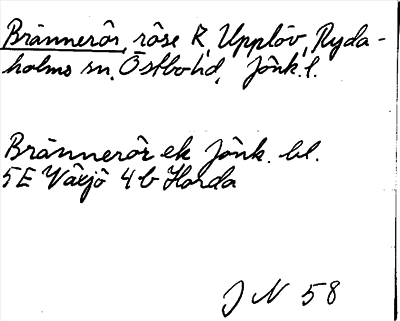 Brännerör, röse R, Upplöv, Ryda-
holms sn, Östbo hd, Jönk. l.
Brännerör ek Jönk. bl.
5E Växjö 4b Horda
J N 58